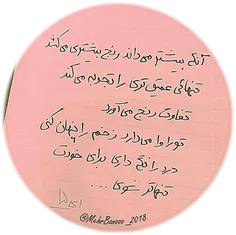 آنکه بیشتر می‌داند رنج بیشتری می‌کشد
تنهائی عمیق‌تری را تجربه می‌کند
تفاوت رنج می‌آورد
تو را وا می‌دارد زخم را پنهان کنی
درد را نگه داری برای خودت
تنهاتر شوی ...
@MehrBanooo_2018